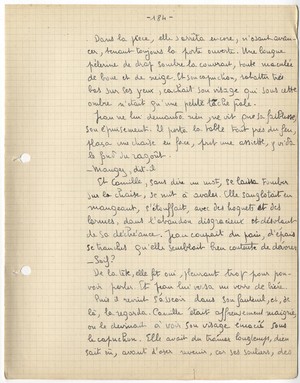 -184-
Dans la pièce, elle s'arrêta encore, n'osant avan-
cer, tenant toujours la porte ouverte. Une longue
pèlerine de drap sombre la couvrait, toute maculée
de boue et de neige. Et son capuchon, rabattu très
bas sur les yeux, cachait son visage qui sous cette
ombre n'était qu'une petite tâche pâle.
Jean ne lui demanda rien, ne vit que sa faiblesse,
son épuisement. Il porta la table tout près du feu,
plaça une chaise en face, prit une assiette, y vida
le fond du ragoût.
- Mangez, dit-il
Et Camille, sans dire un mot, se laissa tomber
sur la chaise, se mit à avaler. Elle sanglotait en
mangeant, s'étouffait, avec des hoquets et des
larmes, dans l'abandon disgracieux et désolant
de sa déchéance. Jean coupait du pain, d'épais-
ses tranches qu'elle semblait bien contente de dévorer.
- Soif?
De la tête, elle fit oui, pleurant trop pour pou-
voir parler. Et Jean lui versa un verre de bière.
Puis il revint s'asseoir dans son fauteuil, et, de
là, la regarda. Camille était affreusement maigre,
on le devinait à voir son visage émacié sous
le capuchon. Elle avait dû traîner longtemps, dieu
sait où, avant d'oser revenir, car ses souliers, des